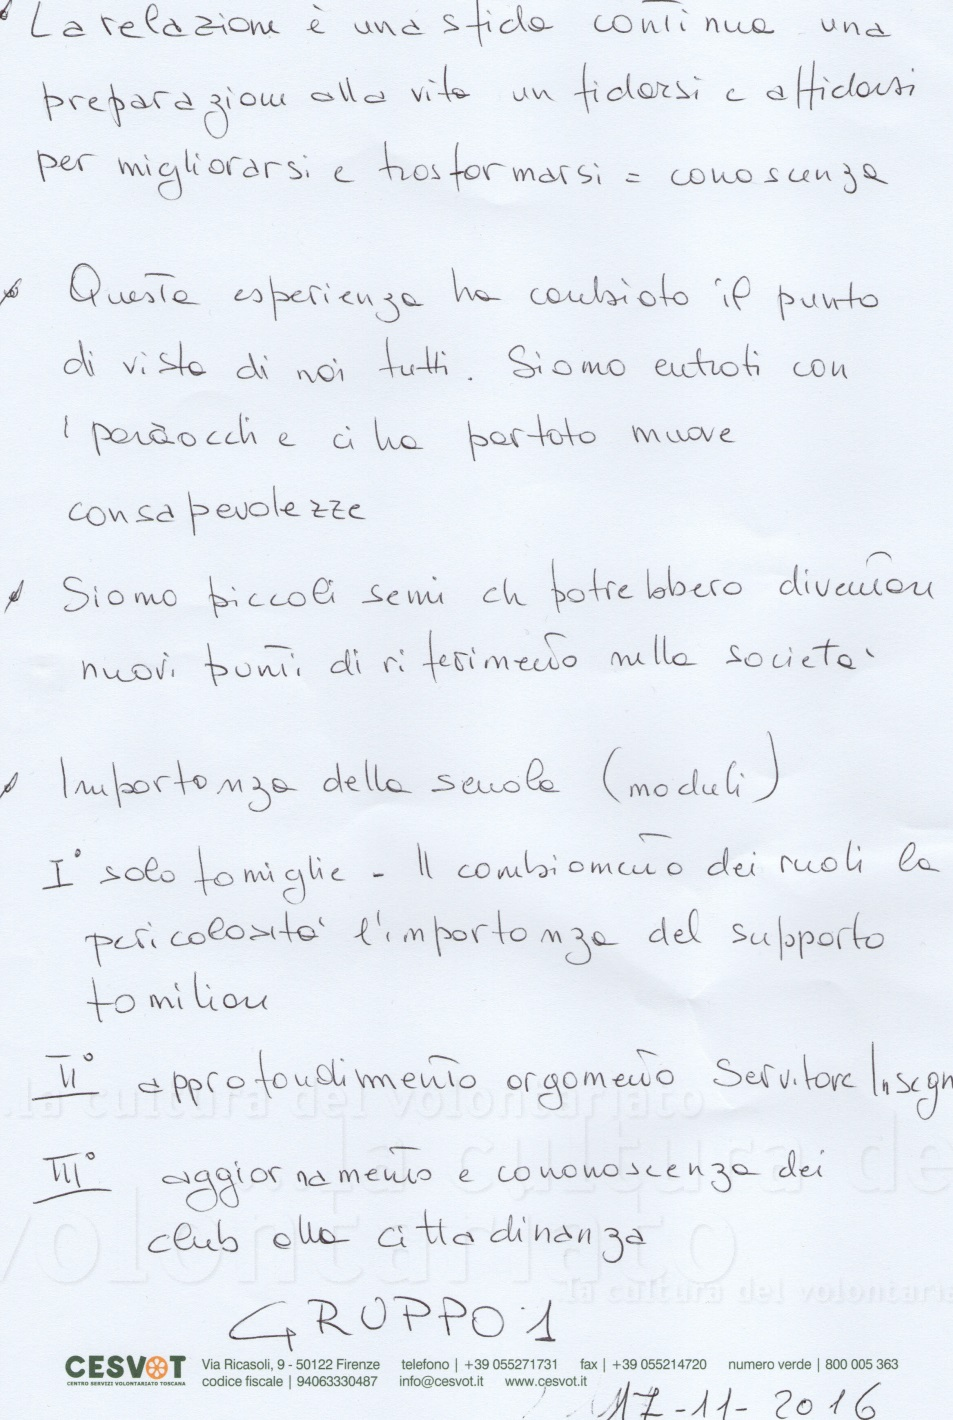 La relazione è una sfida continua una
preparazione alla vita un fidarsi e affidarsi
per migliorarsi e trasformarsi = conoscenza
Questa esperienza ha cambiato il punto
di vista di noi tutti. Siamo entrati con
i paraocchi e ci ha portato nuove
consapevolezze
Siamo piccoli semi che potrebbero diventare
nuovi punti di riferimento nella società
Importanza della scuola (moduli)
I° solo famiglie - Il cambiamento dei ruoli la
pericolosità l'importanza del supporto
familiare
II° approfondimento argomento Servitore Insegn
III° aggiornamento e cononoscenza dei
club alla cittadinanza
...la cultura del volontariato
...la cultura de
volontariato
...la cultura del volontaria
GRUPPO 1
CESVOT
CENTRO SERVIZI VOLONTARIATO TOSCANA
Via Ricasoli, 9 - 50122 Firenze telefono | +39 055271731 fax | +39 055214720 numero verde | 800 005 363
codice fiscale | 94063330487 info@cesvot.it www.cesvot.it
17-11-2016